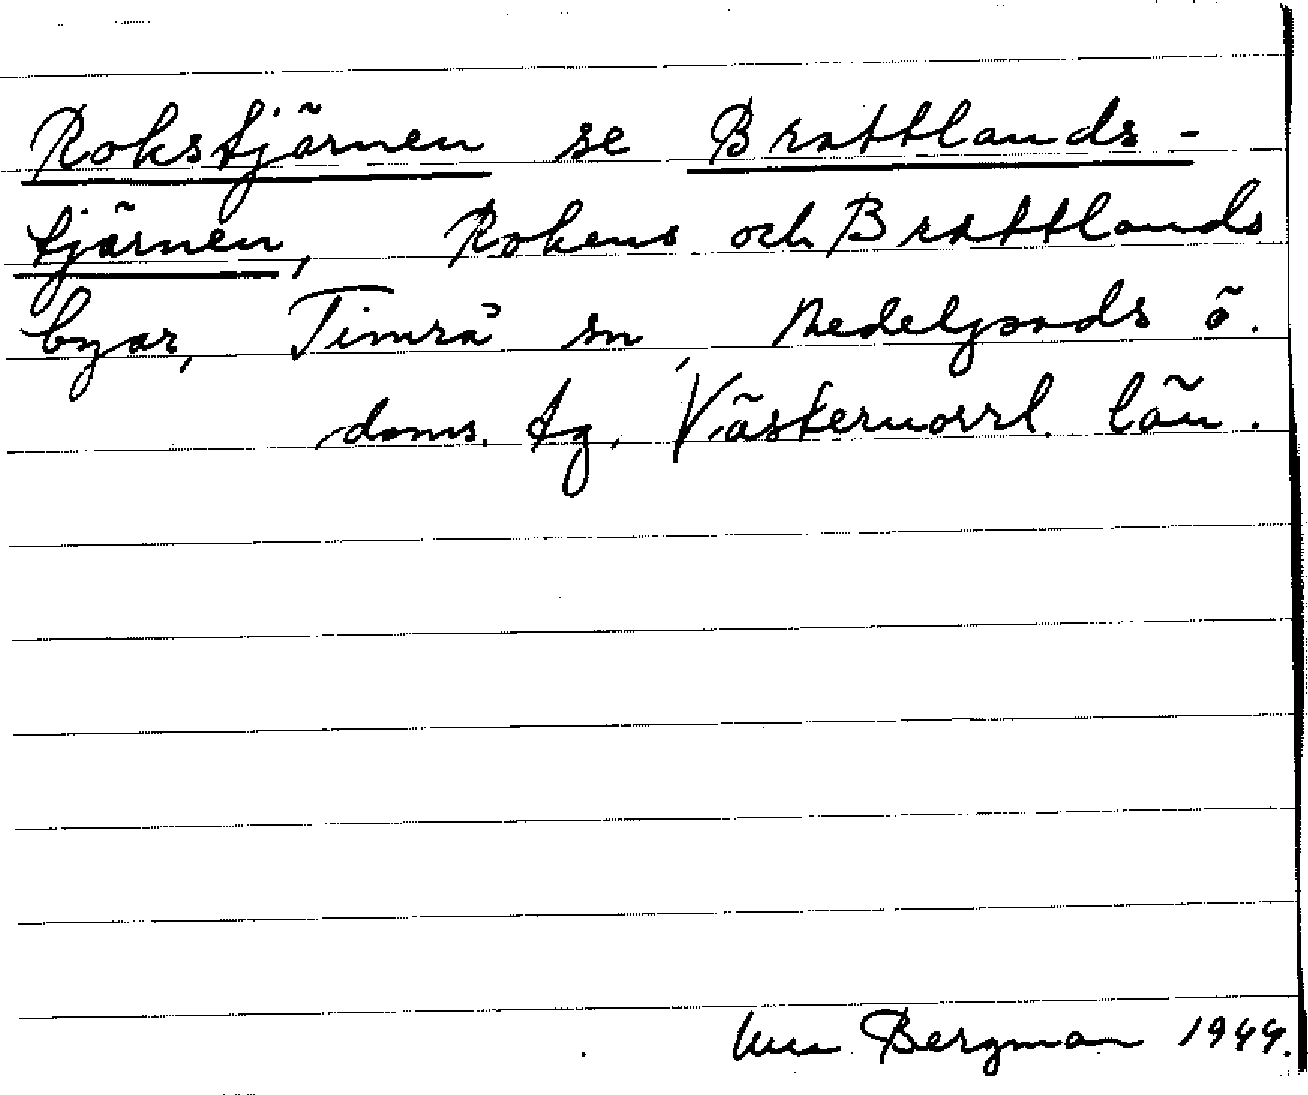 Rokstjärnen se Brattlands-
tjärnen, Rokens och Brattlands
byar, Timrå sn, Medelpads ö.
doms. tg, Västernorrl. län.
Bergman 1944.